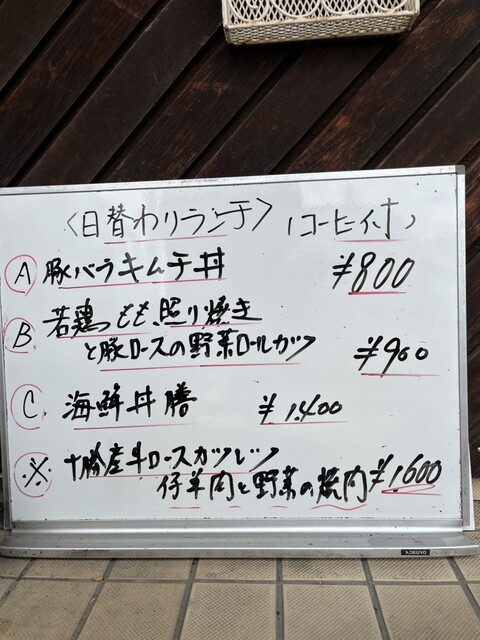 〈日替わりランチ〉 (コーヒー付)
Ⓐ 豚バラキムチ丼 ¥800
Ⓑ 若鶏もも照り焼き
と豚ロースの野菜ロールカツ ¥900
Ⓒ 海鮮丼膳 ¥1.400
※ 十勝産牛ロースカツレツ
仔羊肉と野菜の焼肉 ¥1.600
KOKUYO